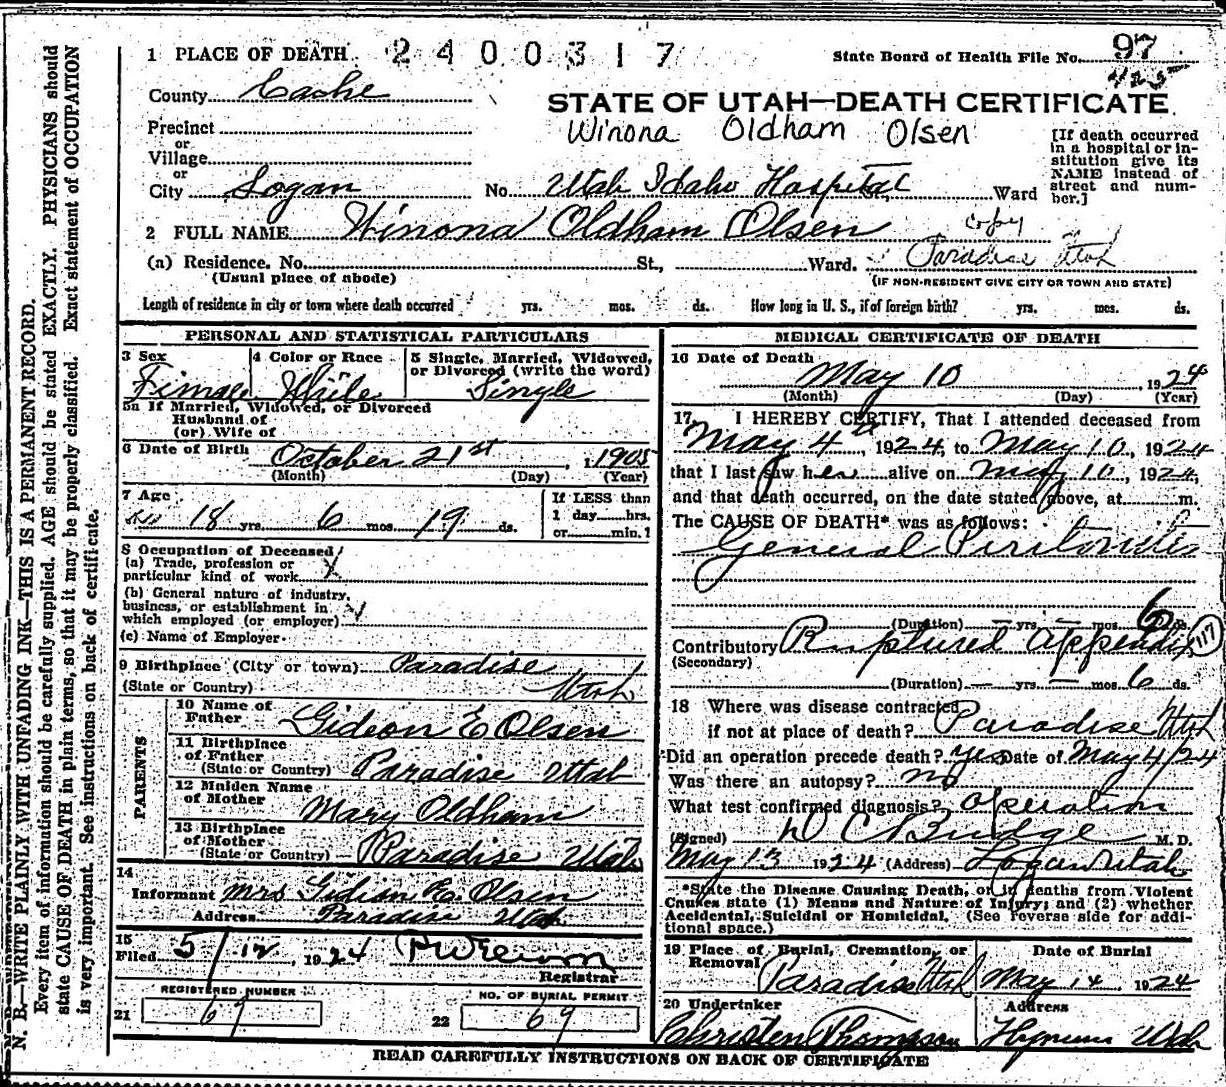 1 PLACE OF DEATH 2400317 State Board of Health File No. 97
425
County Cache
STATE OF UTAH—DEATH CERTIFICATE
Precinct
or
Village
or
City Logan No. Utah Idaho Hospital St., Ward
Winona Oldham Olsen
[If death occurred
in a hospital or in-
stitution give its
NAME instead of
street and num-
ber.]
2 FULL NAME Winona Oldham Olsen copy
(a) Residence. No. St., Ward. Paradise Utah
(Usual place of abode) (IF NON-RESIDENT GIVE CITY OR TOWN AND STATE)
Length of residence in city or town where death occurred yrs. mos. ds. How long in U. S., if of foreign birth? yrs. mos. ds.
PERSONAL AND STATISTICAL PARTICULARS
3 Sex 4 Color or Race 5 Single, Married, Widowed,
or Divorced (write the word)
Fimale White Single
5a If Married, Widowed, or Divorced
Husband of
(or) Wife of
6 Date of Birth October 21st, 1905
(Month) (Day) (Year)
7 Age 18 yrs. 6 mos. 19 ds.
If LESS than
1 day hrs.
or min.?
8 Occupation of Deceased
(a) Trade, profession or
particular kind of work X
(b) General nature of industry,
business, or establishment in
which employed (or employer)
(c) Name of Employer
9 Birthplace (City or town) Paradise
(State or Country) Utah
PARENTS
10 Name of
Father Gideon E Olsen
11 Birthplace
of Father
(State or Country) Paradise Utah
12 Maiden Name
of Mother Mary Oldham
13 Birthplace
of Mother
(State or Country) Paradise Utah
14
Informant Mrs Gidion E. Olsen
Address Paradise Utah
15
Filed 5/12, 1924
Registrar
REGISTERED NUMBER
21 69
NO. OF BURIAL PERMIT
22 69
MEDICAL CERTIFICATE OF DEATH
16 Date of Death
May 10, 1924
(Month) (Day) (Year)
17. I HEREBY CERTIFY, That I attended deceased from
May 4th, 1924, to May 10, 1924
that I last saw her alive on May 10, 1924,
and that death occurred, on the date stated above, at m.
The CAUSE OF DEATH* was as follows:
General Piritonitis
(Duration) — yrs. — mos. 6 ds.
Contributory Ruptured appendix 117
(Secondary)
(Duration) — yrs. — mos. 6 ds.
18 Where was disease contracted
if not at place of death? Paradise Utah
Did an operation precede death? yes Date of May 4/24
Was there an autopsy? no
What test confirmed diagnosis? operation
(Signed) D C Budge M. D.
May 13 1924 (Address) Logan Utah
*State the Disease Causing Death, or in deaths from Violent
Causes state (1) Means and Nature of Injury; and (2) whether
Accidental, Suicidal or Homicidal. (See reverse side for addi-
tional space.)
19 Place of Burial, Cremation, or
Removal Paradise Utah
Date of Burial
May 14 1924
20 Undertaker
Christen Thompson
Address
Hyrum Utah
READ CAREFULLY INSTRUCTIONS ON BACK OF CERTIFICATE
N. B.—WRITE PLAINLY WITH UNFADING INK—THIS IS A PERMANENT RECORD.
Every item of information should be carefully supplied. AGE should be stated EXACTLY. PHYSICIANS should
state CAUSE OF DEATH in plain terms, so that it may be properly classified. Exact statement of OCCUPATION
is very important. See instructions on back of certificate.